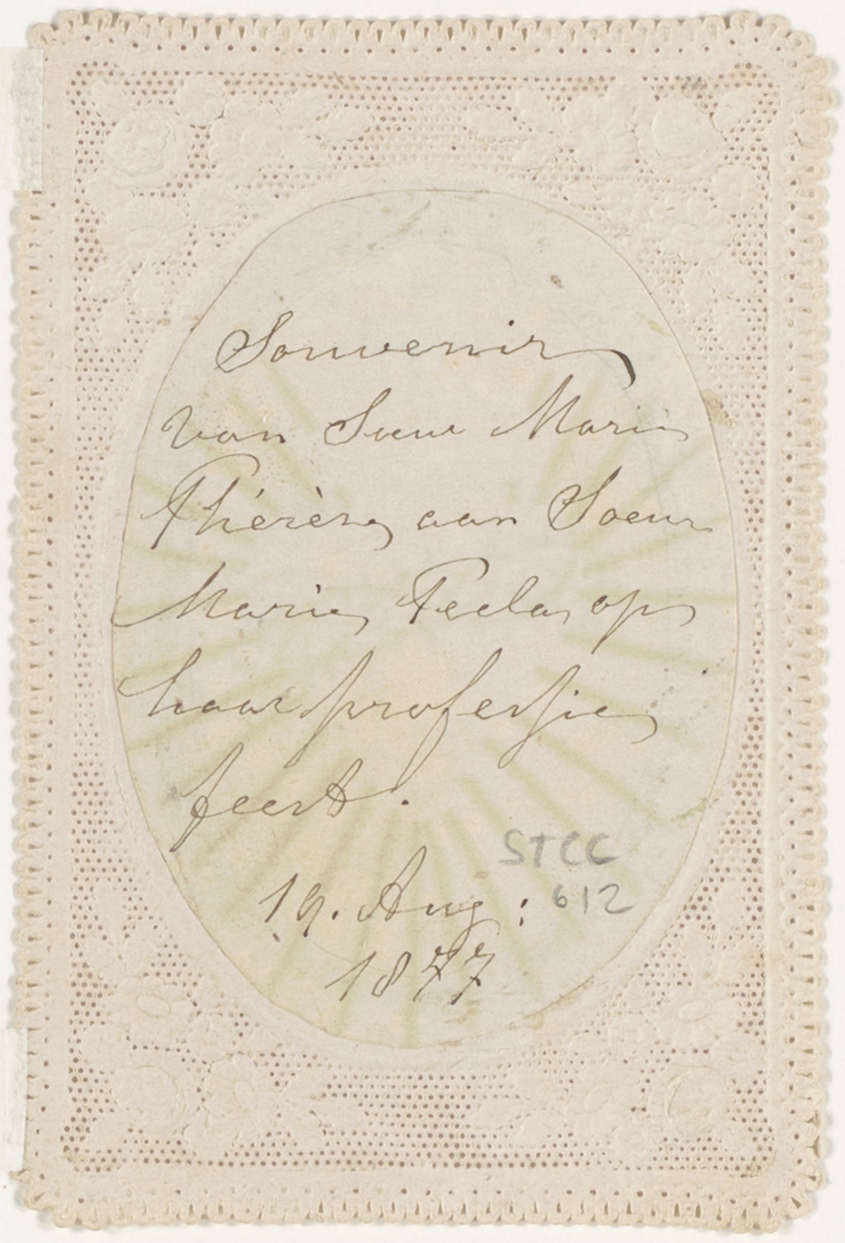 Souvenir
van Soeur Marie
Thérèse aan Soeur
Marie Tecla op
haar professie
feest.
19. Aug:
1877
STCC
612